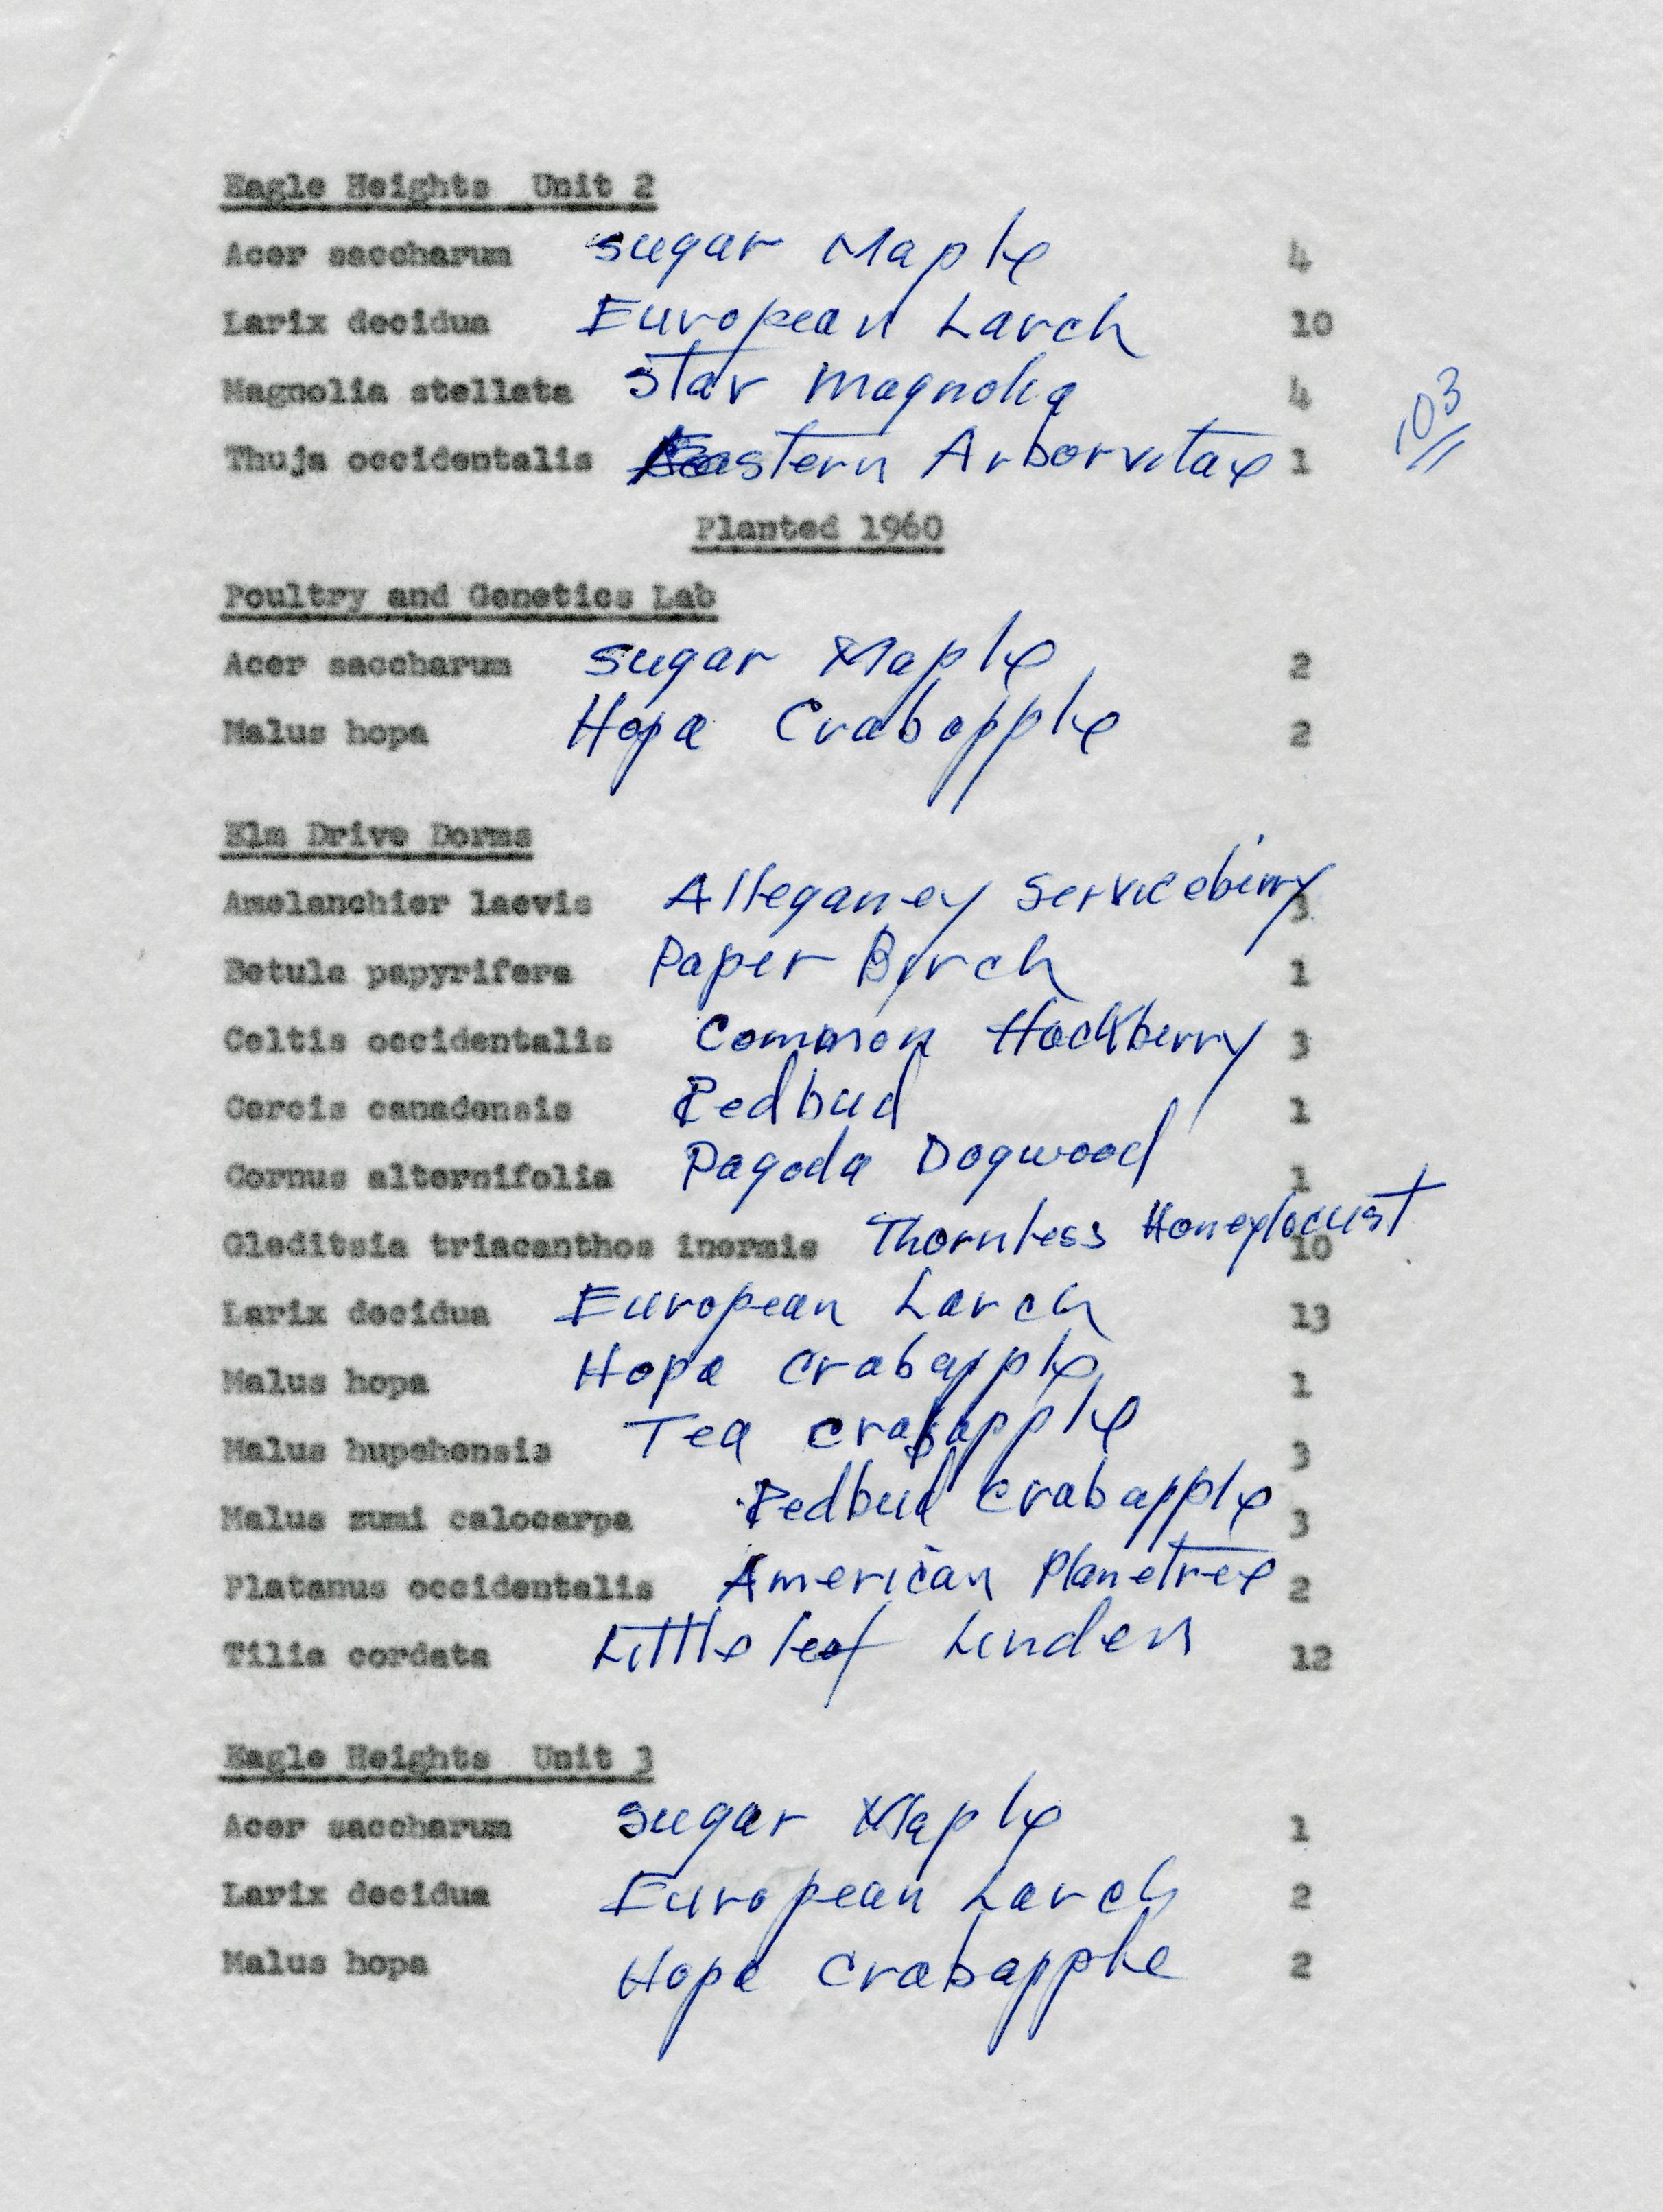 Eagle Heights Unit 2
Acer saccharum Sugar Maple 4
Larix decidua European Larch 10
Magnolia stellata Star Magnolia 4
Thuja occidentalis Eastern Arborvitae 1
103
Planted 1960
Poultry and Genetics Lab
Acer saccharum Sugar Maple 2
Malus hopa Hopa Crabapple 2
Elm Drive Dorms
Amelanchier laevis Alleganey Serviceberry 3
Betula papyrifera Paper Birch 1
Celtis occidentalis Common Hackberry 3
Cercis canadensis Redbud 1
Cornus alternifolia Pagoda Dogwood 1
Gleditsia triacanthos inermis Thornless Honeylocust 10
Larix decidua European Larch 13
Malus hopa Hopa Crabapple 1
Malus hupehensis Tea Crabapple 3
Malus zumi calocarpa Redbud Crabapple 3
Platanus occidentalis American Planetree 2
Tilia cordata Littleleaf Linden 12
Eagle Heights Unit 3
Acer saccharum Sugar Maple 1
Larix decidua European Larch 2
Malus hopa Hopa Crabapple 2